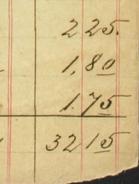 225.
1.80
1.75
3215